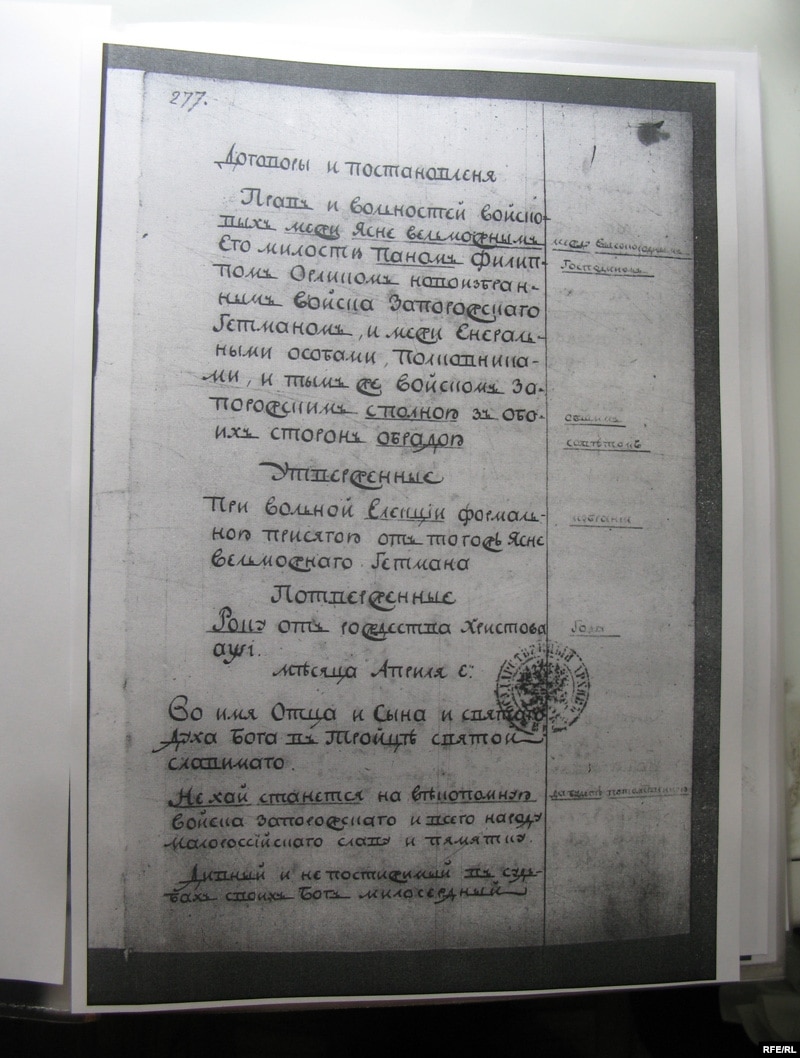 277.
Договоры и постановленя
Правъ и вольностей войско-
выхъ межи Ясне вельможнымъ
Его милостю Паномъ Филип-
помъ Орликомъ новоизбран-
нымъ Войска Запорожскаго
Гетманомъ, и межи Енераль-
ными особами, Полковника-
ми, и тымъ же Войскомъ За-
порожскимъ сполною зъ обо-
ихъ сторонъ обрадою
Утверженные
При вольной Елекціи формаль-
ною присягою отъ тогожъ Ясне
вельможнаго Гетмана
Потверженные
Року отъ рождества Христова
Года
аѱі.
мѣсяца Априля е҃:
Во имя Отца и Сына и святаго
Духа Бога въ Тройцѣ святой
славимаго.
Нехай станется на вѣкопомную
Войска Запорожскаго и всего народу
Малороссійскаго славу и памятку.
Дивный и непостижимый въ суд-
бахъ своихъ Богъ милосердный
Господиномъ
общимъ
совѣтомъ
избраніи
RFE/RL